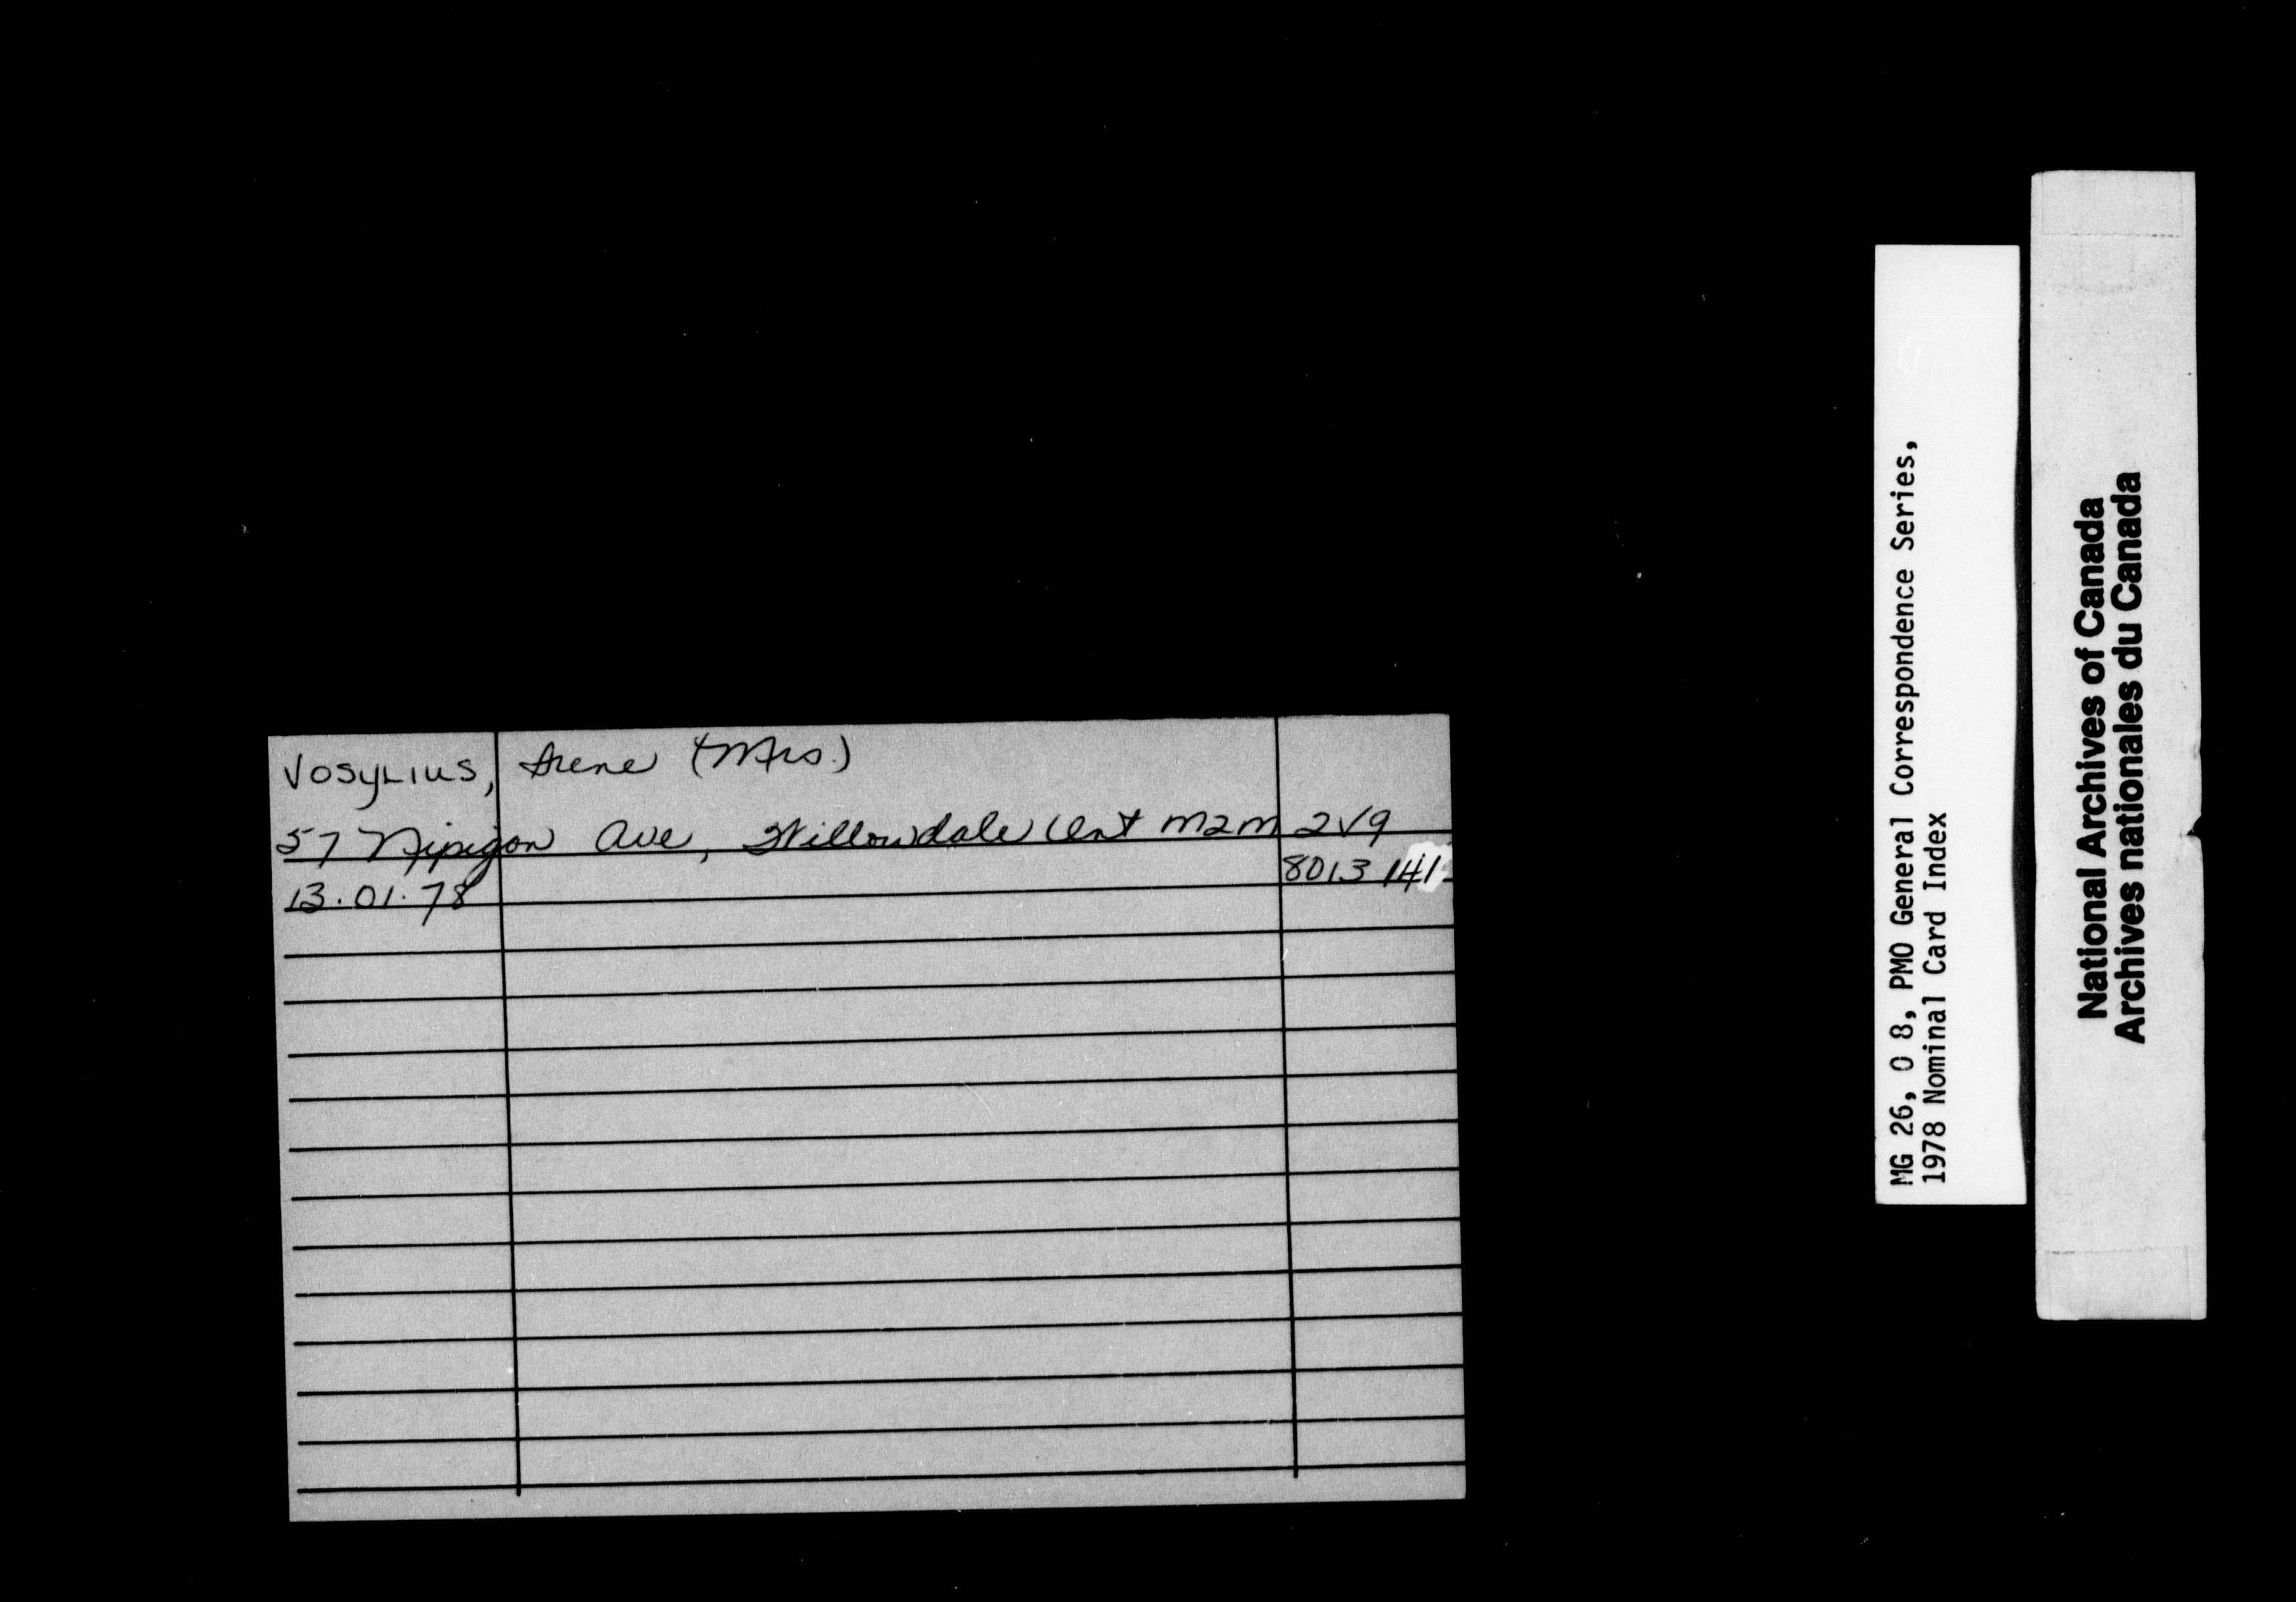 VOSYLIUS, Irene (Mrs.)
57 Nipigon Ave, Willowdale Ont M2M 2V9
13.01.78 8013 141
MG 26, O 8, PMO General Correspondence Series,
1978 Nominal Card Index
National Archives of Canada
Archives nationales du Canada